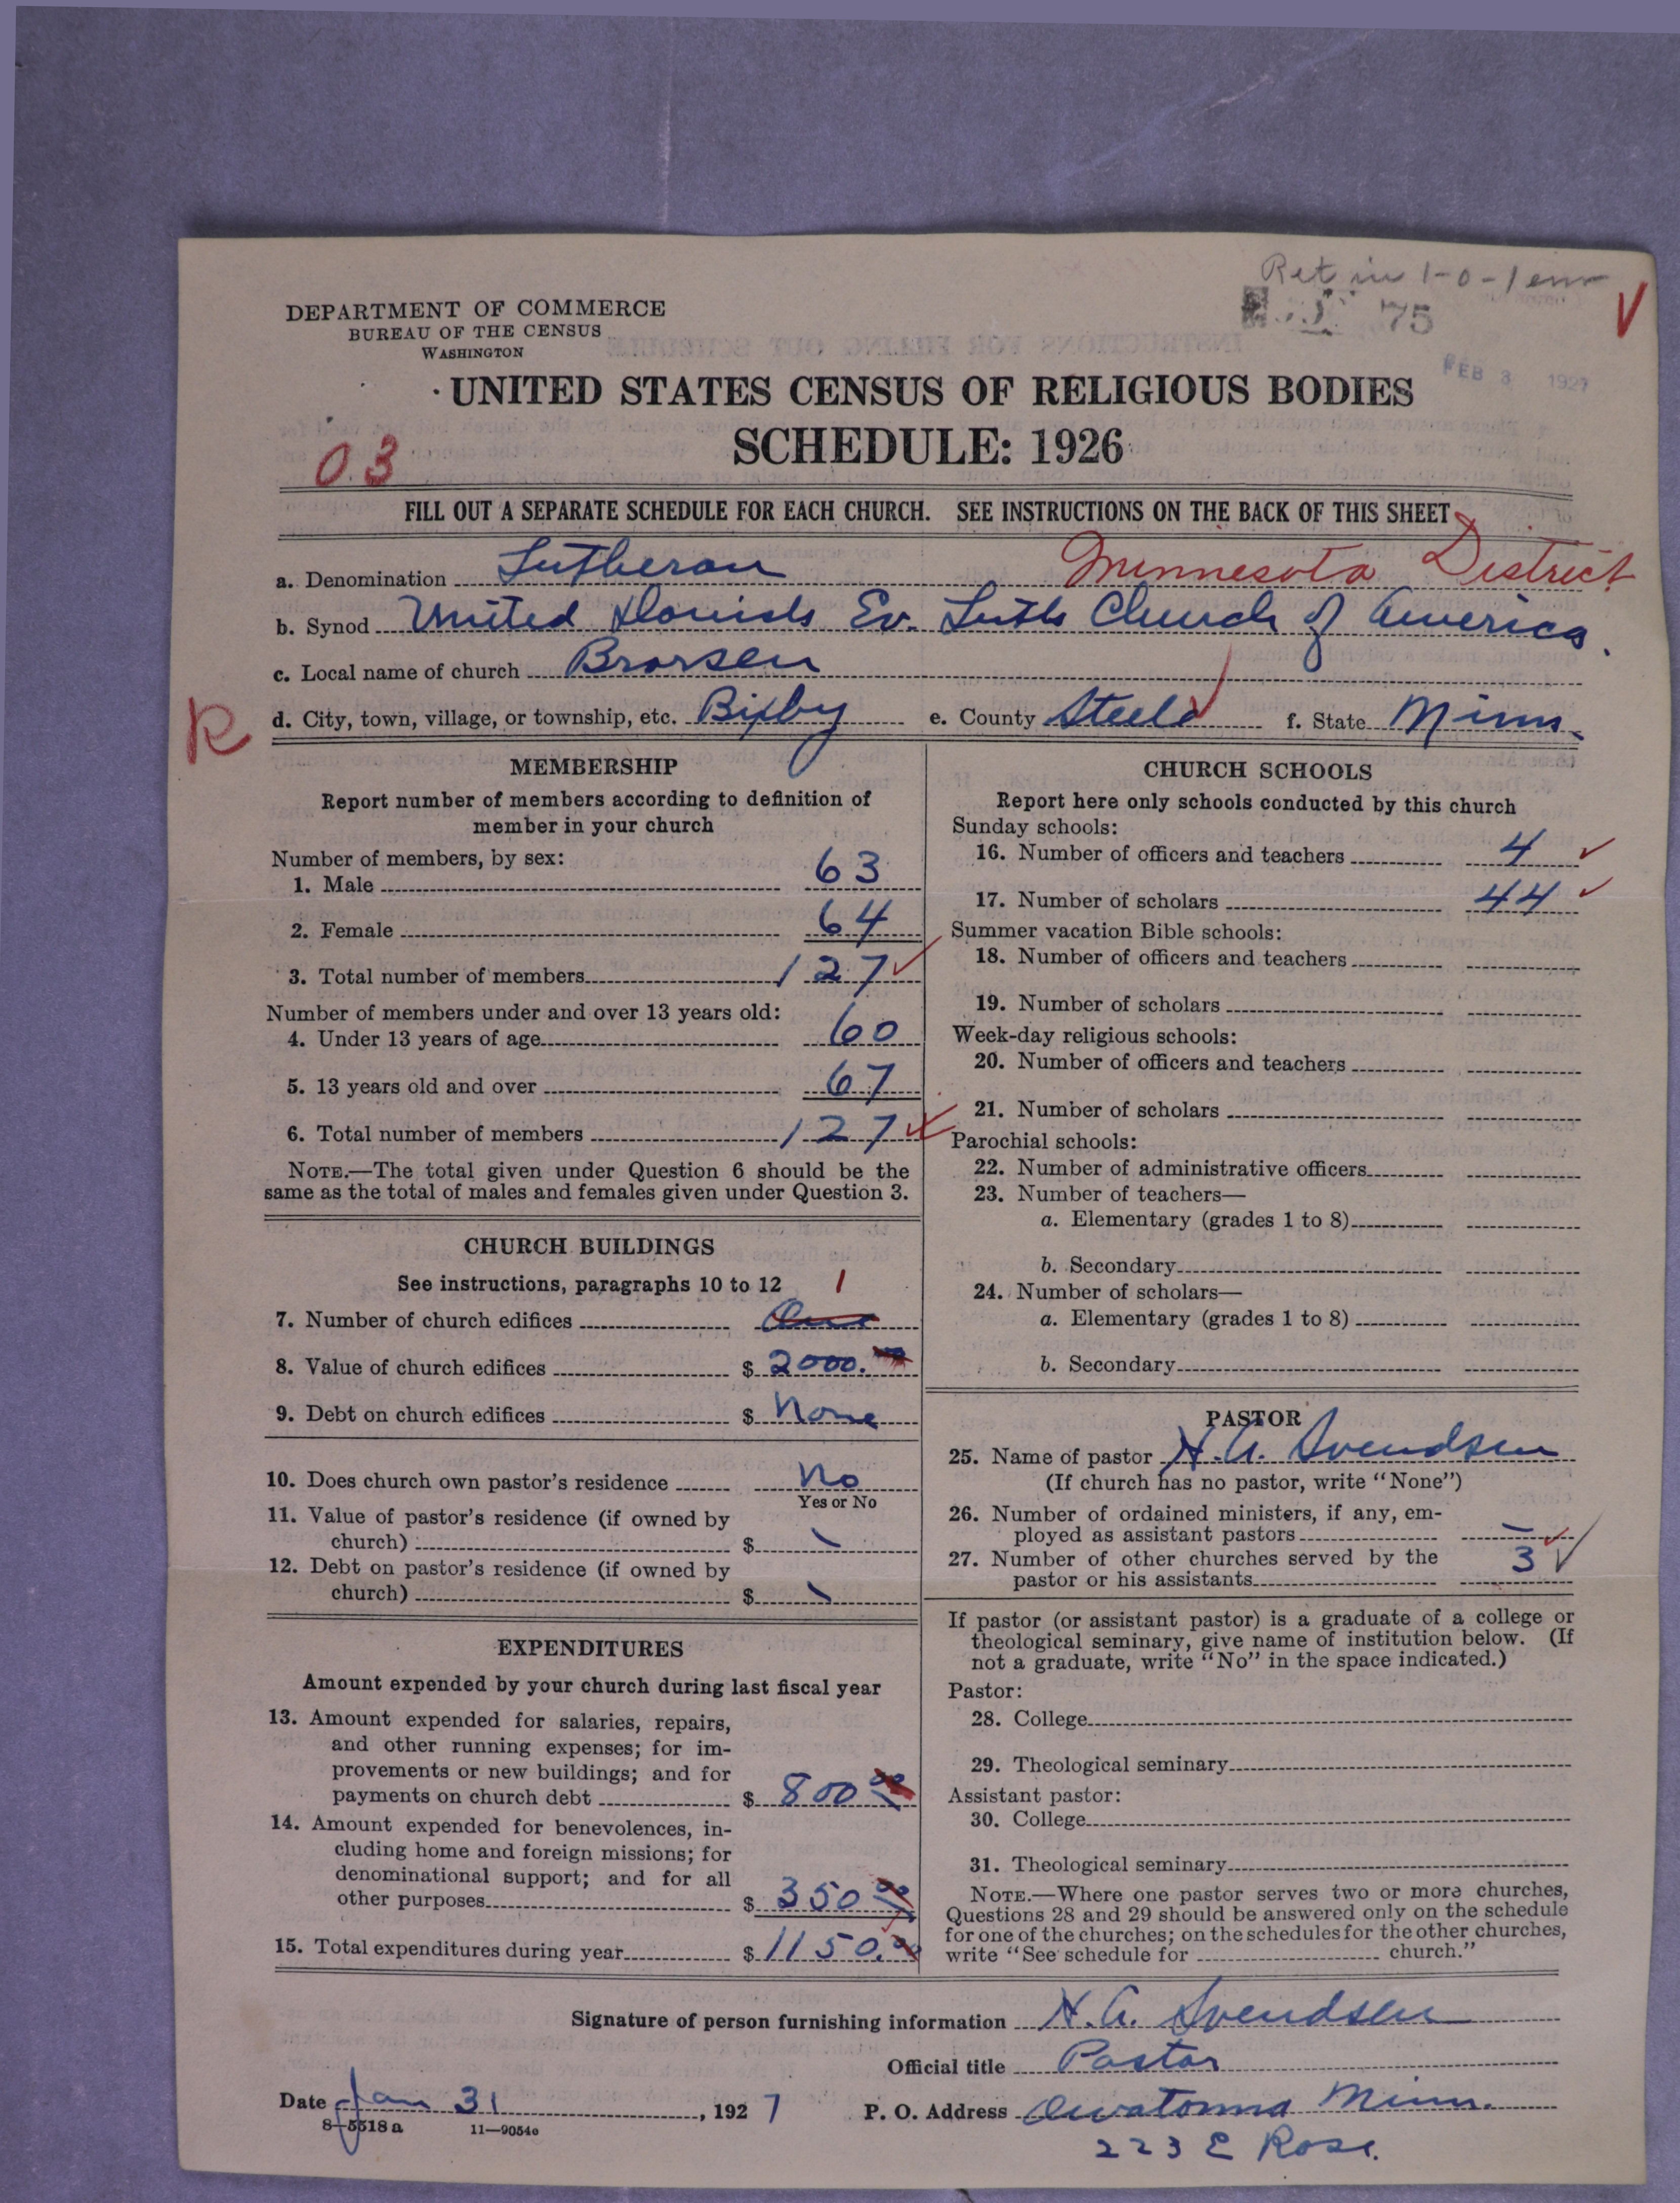 Ret in 1-0-1 enr
75
DEPARTMENT OF COMMERCE
BUREAU OF THE CENSUS
WASHINGTON
FEB 3 1927
UNITED STATES CENSUS OF RELIGIOUS BODIES
SCHEDULE: 1926
0.3
FILL OUT A SEPARATE SCHEDULE FOR EACH CHURCH. SEE INSTRUCTIONS ON THE BACK OF THIS SHEET
a. Denomination Lutheran Minnesota District
b. Synod United Danish Ev. Luth Church of America.
c. Local name of church Brorsen
R
d. City, town, village, or township, etc. Bixby e. County Steele f. State Minn.
MEMBERSHIP
Report number of members according to definition of
member in your church
Number of members, by sex:
1. Male 63
2. Female 64
3. Total number of members 127
Number of members under and over 13 years old:
4. Under 13 years of age 60
5. 13 years old and over 67
6. Total number of members 127
NOTE.—The total given under Question 6 should be the
same as the total of males and females given under Question 3.
CHURCH BUILDINGS
See instructions, paragraphs 10 to 12 1
7. Number of church edifices One
8. Value of church edifices $ 2000.
9. Debt on church edifices $ None
10. Does church own pastor's residence No
Yes or No
11. Value of pastor's residence (if owned by
church) $ \
12. Debt on pastor's residence (if owned by
church) $ \
EXPENDITURES
Amount expended by your church during last fiscal year
13. Amount expended for salaries, repairs,
and other running expenses; for im-
provements or new buildings; and for
payments on church debt $ 800 00
14. Amount expended for benevolences, in-
cluding home and foreign missions; for
denominational support; and for all
other purposes $ 350 00
15. Total expenditures during year $ 1150.00
CHURCH SCHOOLS
Report here only schools conducted by this church
Sunday schools:
16. Number of officers and teachers 4
17. Number of scholars 44
Summer vacation Bible schools:
18. Number of officers and teachers
19. Number of scholars
Week-day religious schools:
20. Number of officers and teachers
21. Number of scholars
Parochial schools:
22. Number of administrative officers
23. Number of teachers—
a. Elementary (grades 1 to 8)
b. Secondary
24. Number of scholars—
a. Elementary (grades 1 to 8)
b. Secondary
PASTOR
25. Name of pastor H.A. Svendsen
(If church has no pastor, write "None")
26. Number of ordained ministers, if any, em-
ployed as assistant pastors —
27. Number of other churches served by the
pastor or his assistants 3
If pastor (or assistant pastor) is a graduate of a college or
theological seminary, give name of institution below. (If
not a graduate, write "No" in the space indicated.)
Pastor:
28. College
29. Theological seminary
Assistant pastor:
30. College
31. Theological seminary
NOTE.—Where one pastor serves two or more churches,
Questions 28 and 29 should be answered only on the schedule
for one of the churches; on the schedules for the other churches,
write "See schedule for church."
Signature of person furnishing information H.A. Svendsen
Official title Pastor
Date Jan 31, 1927 P. O. Address Owatonna Minn.
8-5518 a 11—9054a
223 E Rose.